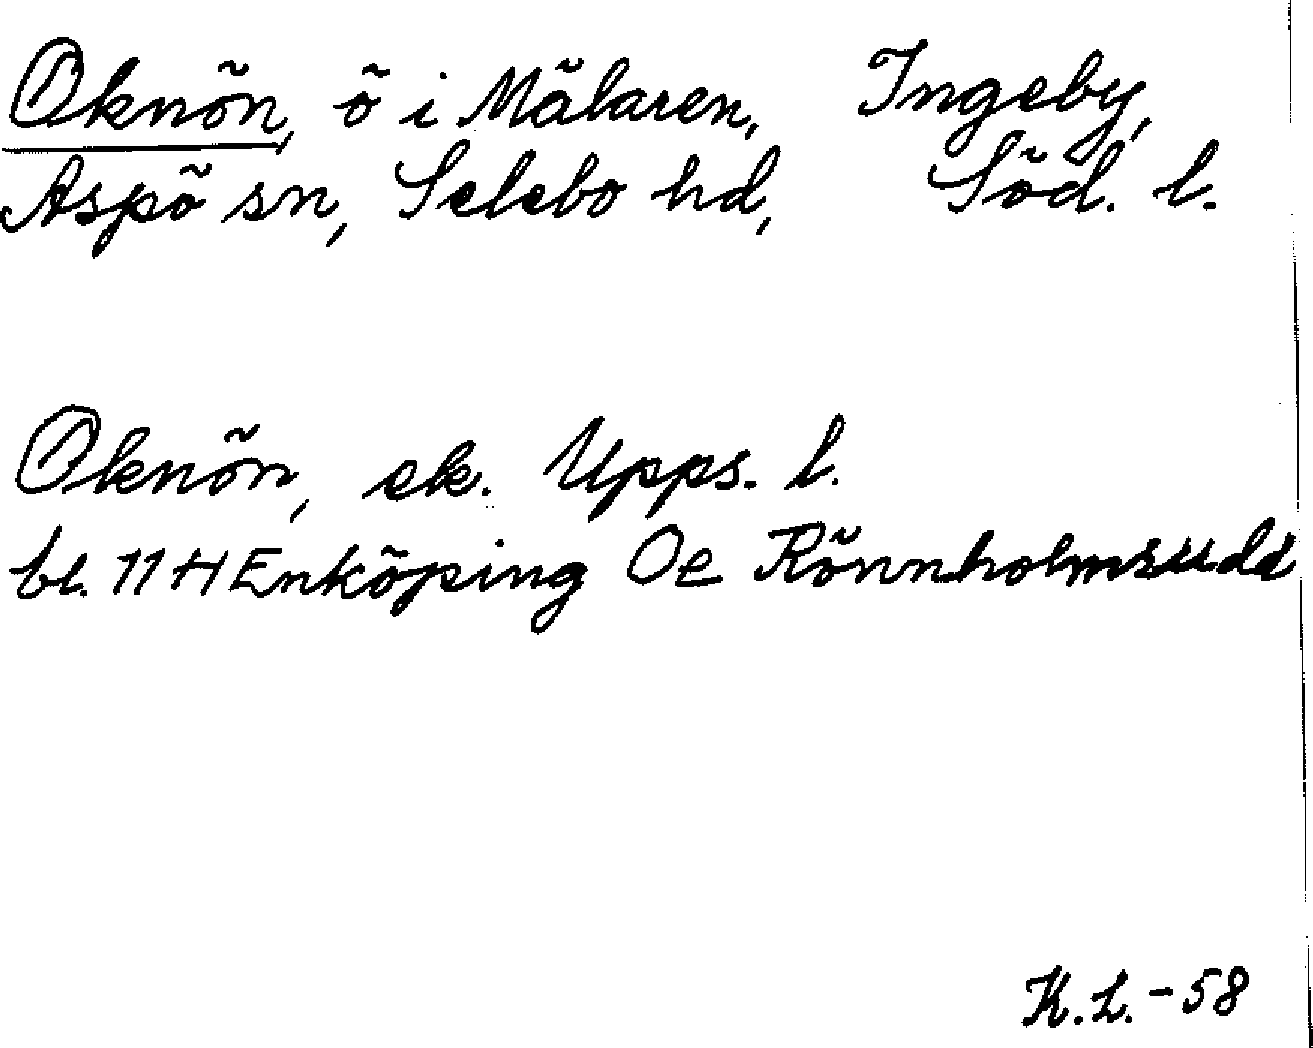 Oknön, ö i Mälaren, Ingeby,
Aspö sn, Selebo hd, Söd. l.
Oknön, ek. Upps. l.
bl. 11 H Enköping Oe Rönnholmsudd
K.L. -58